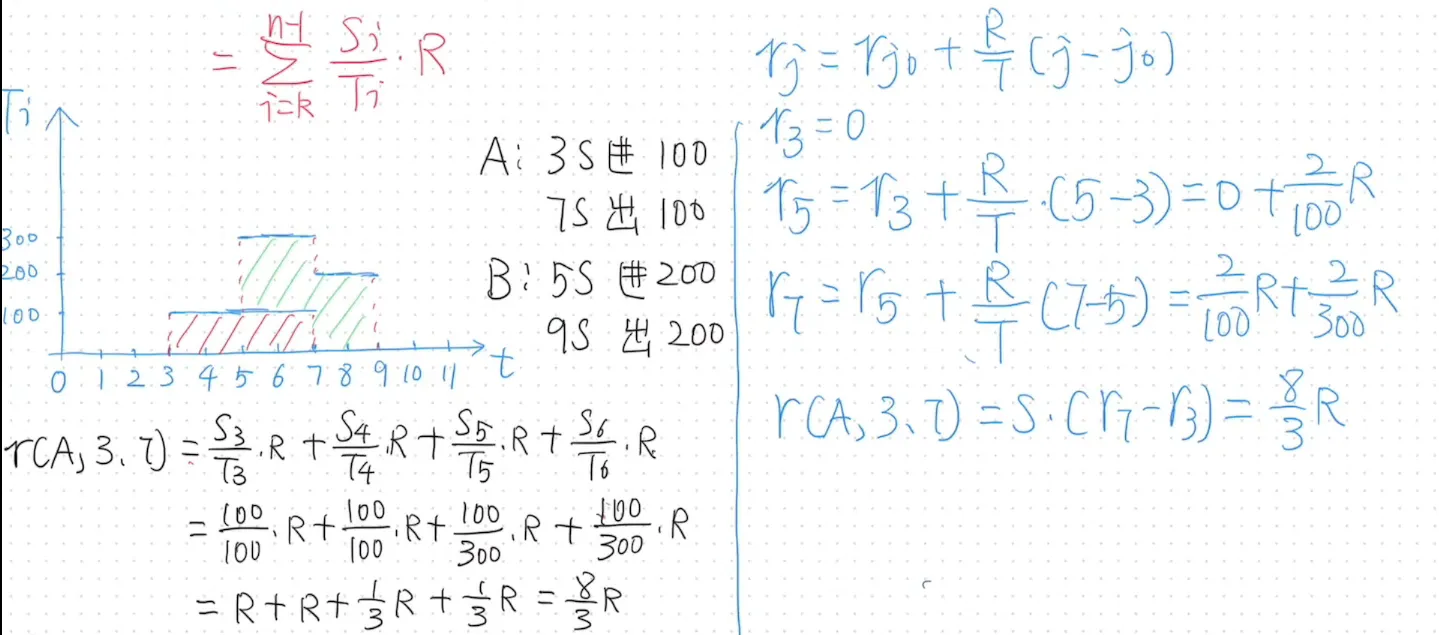 = \sum_{i=k}^{n-1} \frac{S_i}{T_i} \cdot R
T_i
300
200
100
0 1 2 3 4 5 6 7 8 9 10 11 t
A: 3S 进 100
7S 出 100
B: 5S 进 200
9S 出 200
r(A, 3、7) = \frac{S_3}{T_3} \cdot R + \frac{S_4}{T_4} \cdot R + \frac{S_5}{T_5} \cdot R + \frac{S_6}{T_6} \cdot R
= \frac{100}{100} \cdot R + \frac{100}{100} \cdot R + \frac{100}{300} \cdot R + \frac{100}{300} \cdot R
= R + R + \frac{1}{3} R + \frac{1}{3} R = \frac{8}{3} R
r_j = r_{j_0} + \frac{R}{T} (j - j_0)
r_3 = 0
r_5 = r_3 + \frac{R}{T} \cdot (5 - 3) = 0 + \frac{2}{100} R
r_7 = r_5 + \frac{R}{T} (7 - 5) = \frac{2}{100} R + \frac{2}{300} R
r(A, 3、7) = S \cdot (r_7 - r_3) = \frac{8}{3} R